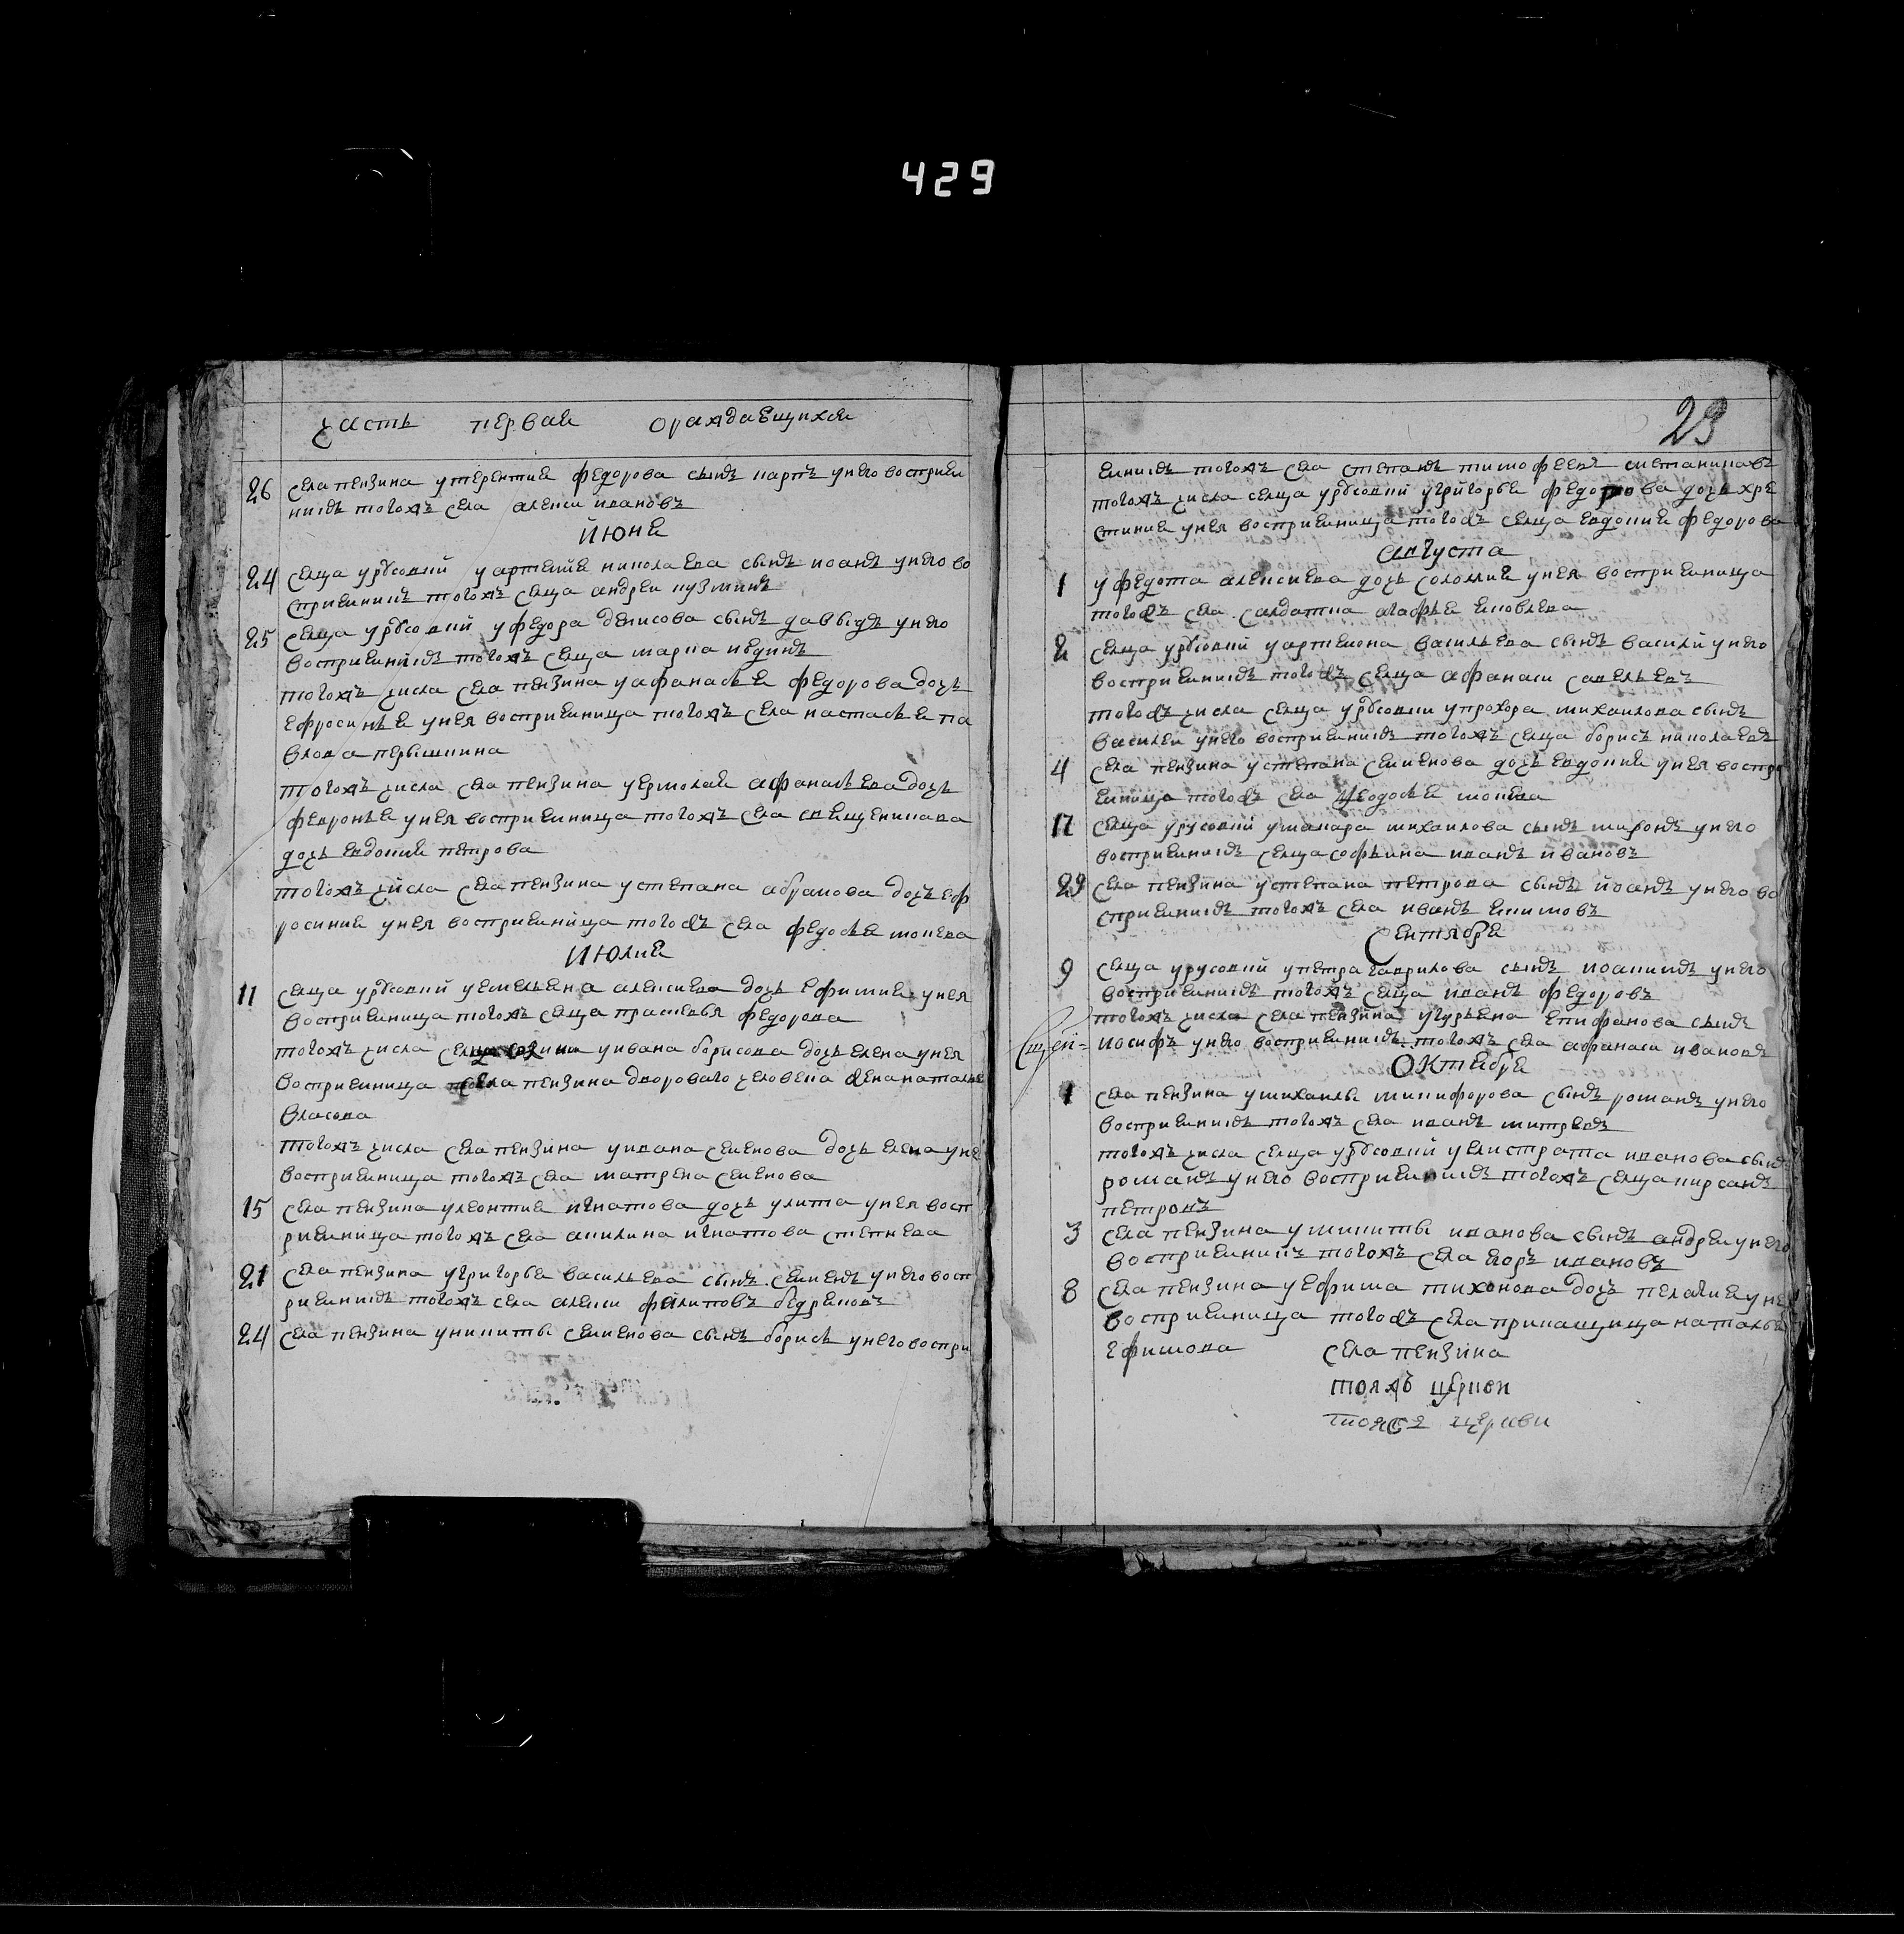 429
часть первая ораждаещихся
26 села пензина утерентия федорова сынъ карпъ унего восприем
никъ тогожъ села алексй ивановъ
Июня
24 селца урусовки уартемя николаева сынъ иоанъ унего во
сприемникъ тогожъ селца андреи кузминъ
25 селца урусовки уфедора денисова сынъ давыдъ унего
восприемникъ тогожъ селца
тогожъ числа села пензина уафанасья федорова дочь
ефросинья унея восприемница тогожъ села настасья па
влова
тогожъ числа села пензина уермолая афанасьева дочь
февронья унея восприемница тогожъ села священикова
дочь евдокия петрова
тогожъ числа села пензина устепана абрамова дочь еф
росиния унея восприемница тогожъ села федосья мокева
Июлия
11 селца урусовки уемельяна алексиева дочь ефимия унея
восприемница тогожъ селца прасковья федорова
тогожъ числа уивана борисова дочь елена унея
восприемница села пензина дворового человека жена наталья
власова
тогожъ числа села пензина уивана семенова дочь елена уне
восприемница тогожъ села матрена семенова
15 села пензина улеонтия игнатова дочь улита унея восп
риемница тогожъ села акилина игнатова
21 села пензина угригорья васильева сынъ семенъ унего восп
риемникъ тогожъ села алекси филиповъ
24 села пензина уникиты семенова сынъ борисъ унего воспри
23
емникъ тогожъ села степанъ тимофеевъ
тогожъ числа селца урусовки угригорья федорова дочь хре
стиния унея восприемница тогожъ селца евдокия федорова
августа
1 уфедота алексиева дочь соломия унея восприемница
тогожъ села салдатка агафья яковлева
2 селца урусовки уартемона васильева сынъ василй унего
восприемникъ тогожъ селца афанаси савельевъ
тогожъ числа селца урусовки упрохора михаилова сынъ
василеи унего восприемникъ тогожъ селца борисъ николаевъ
4 села пензина устепана семенова дочь евдокия унея воспри
емница тогожъ села феодосья мокева
17 селца урусовки умакара михаилова сынъ миронъ унего
восприемникъ селца софьина иванъ ивановъ
29 села пензина устепана петрова сынъ иоанъ унего во
сприемникъ тогожъ села иванъ екимовъ
Сентября
9 селца урусовки упетра гаврилова сынъ иоаникъ унего
восприемникъ тогожъ селца иванъ федоровъ
тогожъ числа села пензина угурьяна епифанова сынъ
иосифъ унего восприемникъ тогожъ села афанаси ивановъ
Октября
1 села пензина умихаилы никифорова сынъ романъ унего
восприемникъ тогожъ села иванъ митревъ
тогожъ числа селца урусовки уелистрата иванова сынъ
романъ унего восприемникъ тогожъ селца кирсанъ
петровъ
3 села пензина уникиты иванова сынъ андреи унего
восприемникъ тогожъ села егоръ ивановъ
8 села пензина уефима тихонова дочь пелагия уне
восприемница тогожъ села прикащица наталья
ефимова села пензина
тояжъ церкви
тояжъ церкви